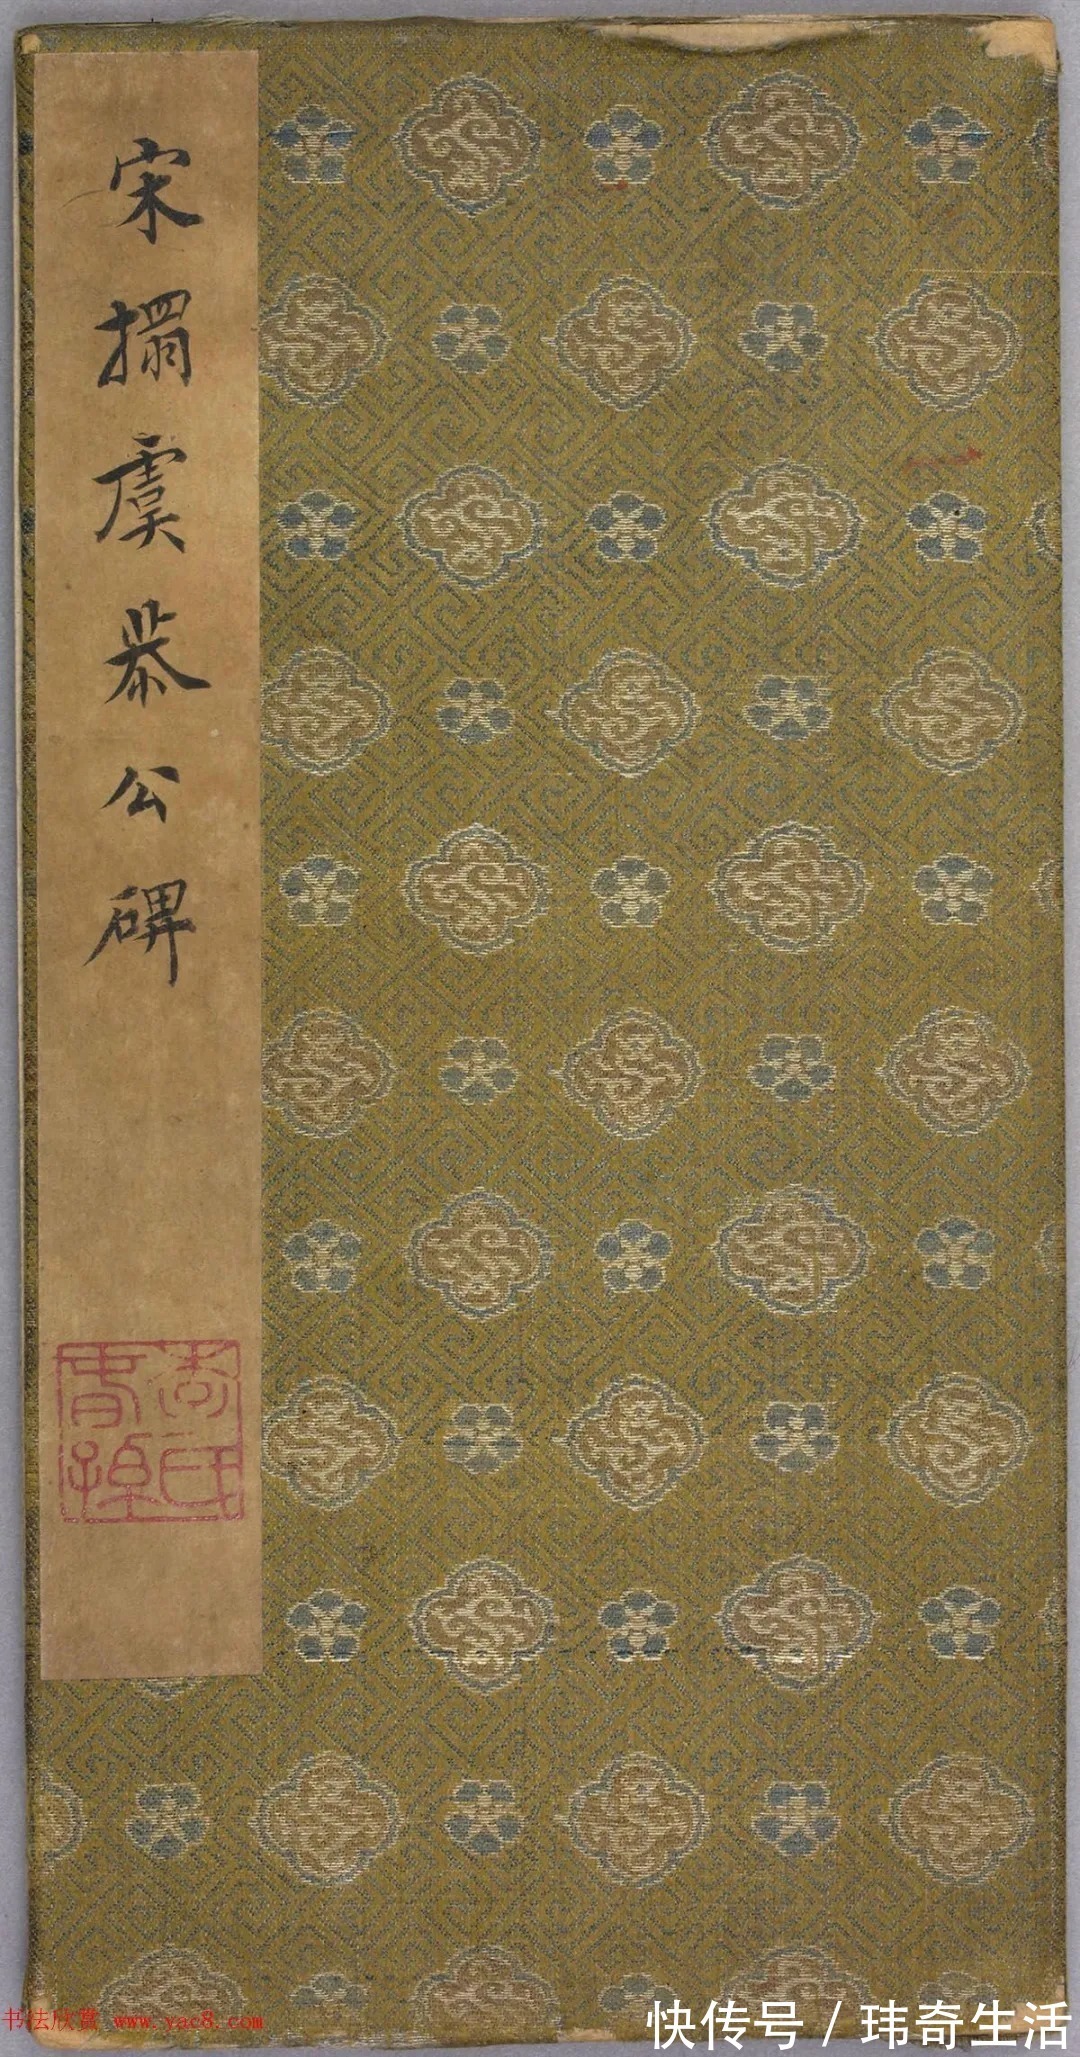 宋搨虞恭公碑
书法欣赏 www.yac8.com
快传号 / 玮奇生活